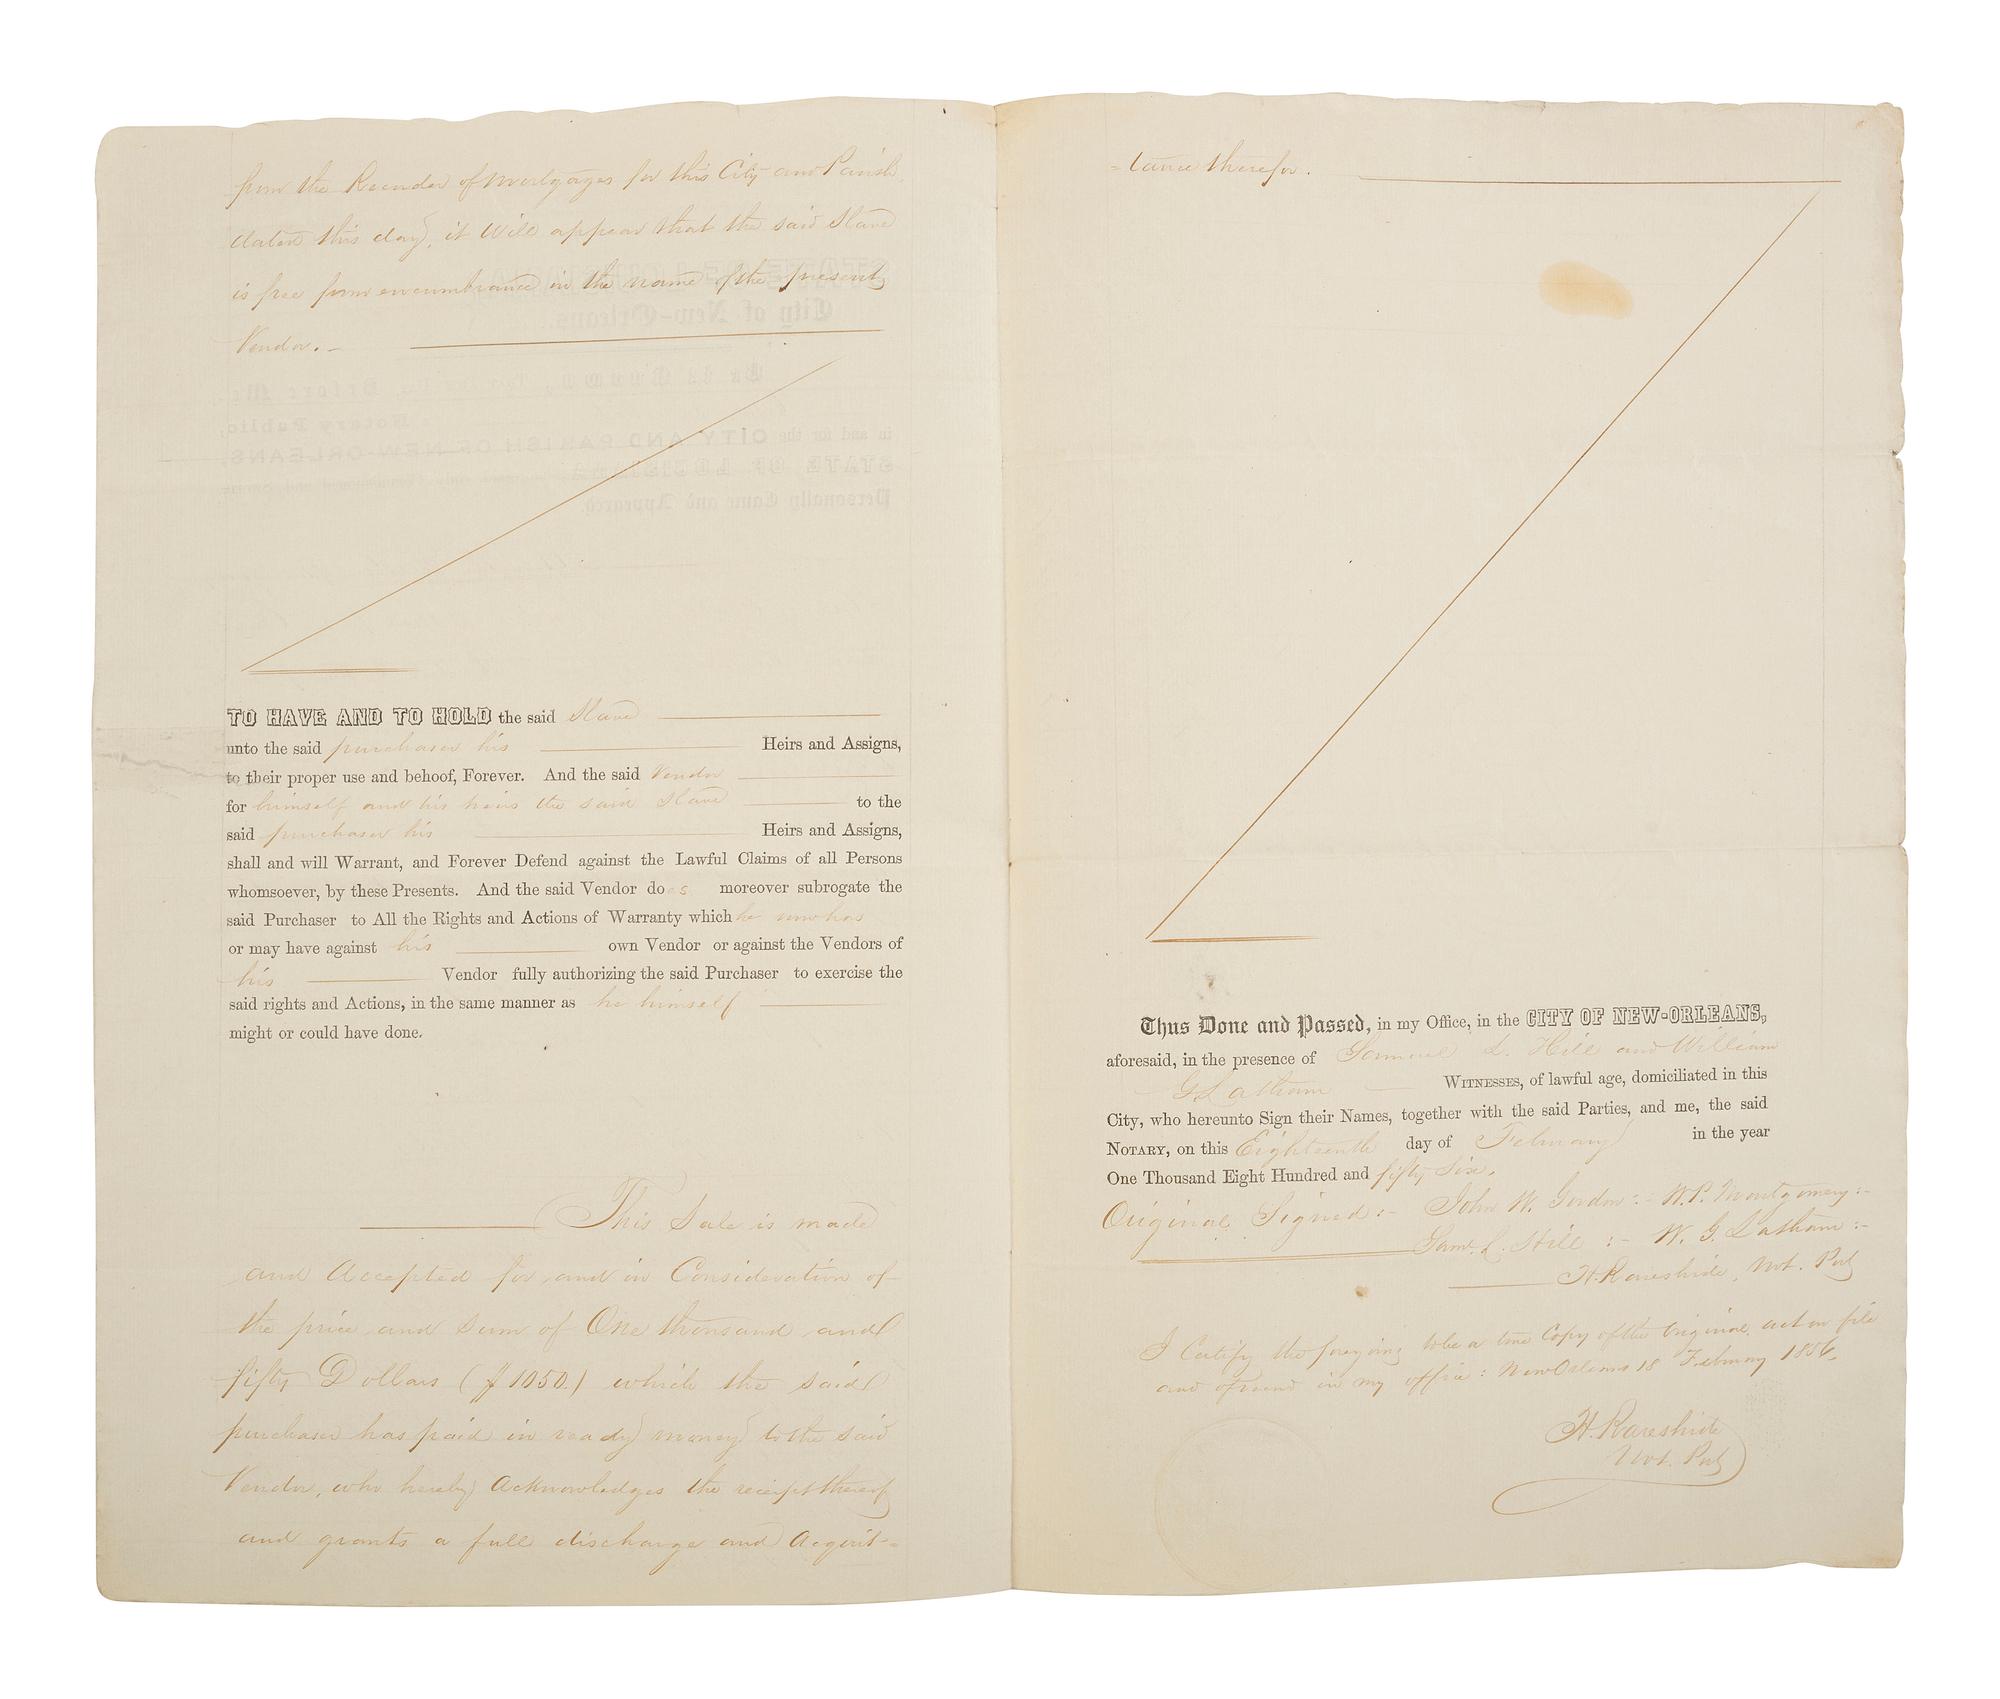 from the Recorder of Mortgages for this City and Parish,
dated this day, it Will appear that the said Slave
is free from encumbrance in the name of the present
Vendor. -
TO HAVE AND TO HOLD the said Slave
unto the said purchaser his Heirs and Assigns,
to their proper use and behoof, Forever. And the said Vendor
for himself and his heirs the said Slave to the
said purchaser his Heirs and Assigns,
shall and will Warrant, and Forever Defend against the Lawful Claims of all Persons
whomsoever, by these Presents. And the said Vendor does moreover subrogate the
said Purchaser to All the Rights and Actions of Warranty which he now has
or may have against his own Vendor or against the Vendors of
his Vendor fully authorizing the said Purchaser to exercise the
said rights and Actions, in the same manner as he himself
might or could have done.
This Sale is made
and Accepted for and in Consideration of
the price and Sum of One thousand and
fifty Dollars ($1050.) which the said
purchaser has paid in ready money to the said
Vendor, who hereby Acknowledges the receipt thereof
and grants a full discharge and Acquit-
=tance therefor.
Thus Done and Passed, in my Office, in the CITY OF NEW-ORLEANS,
aforesaid, in the presence of Samuel L. Hill and William
G Latham WITNESSES, of lawful age, domiciliated in this
City, who hereunto Sign their Names, together with the said Parties, and me, the said
NOTARY, on this Eighteenth day of February in the year
One Thousand Eight Hundred and fifty Six.
Original Signed:- John W. Gordon:- W. P. Montgomery:-
Saml. L. Hill :- W. G. Latham :-
H. Rareshide, Not. Pub
I Certify the foregoing to be a true Copy of the Original act on file
and of record in my office: New Orleans 18 February 1856.
H. Rareshide
Not. Pub